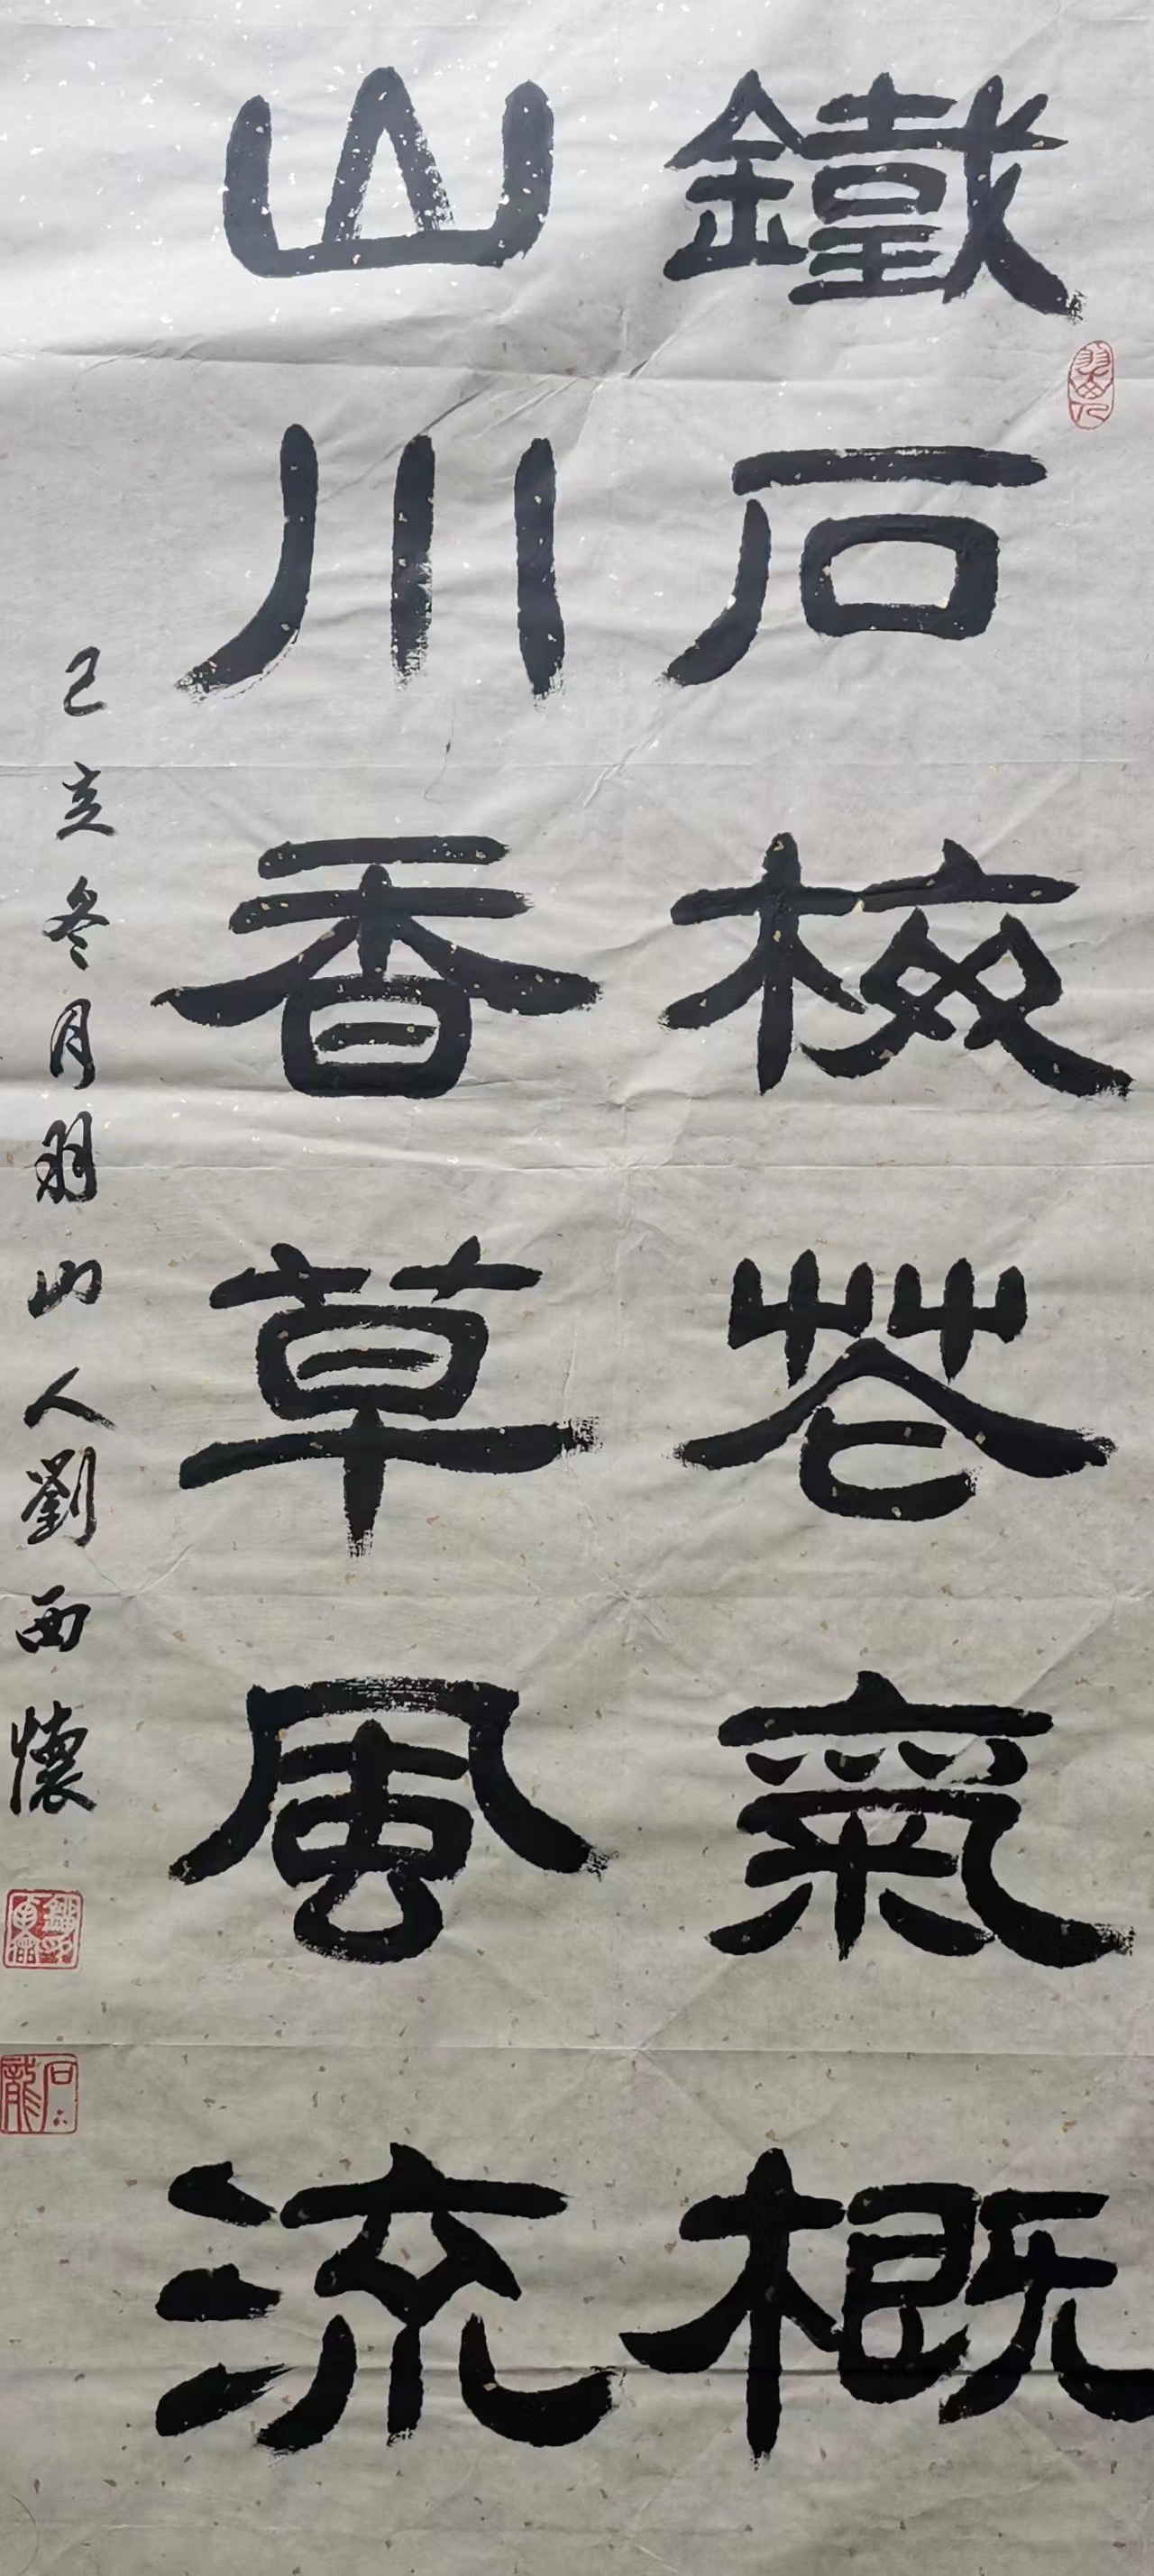 鐵石梅花氣概
山川香草風流
己亥冬月羽山人劉西懷